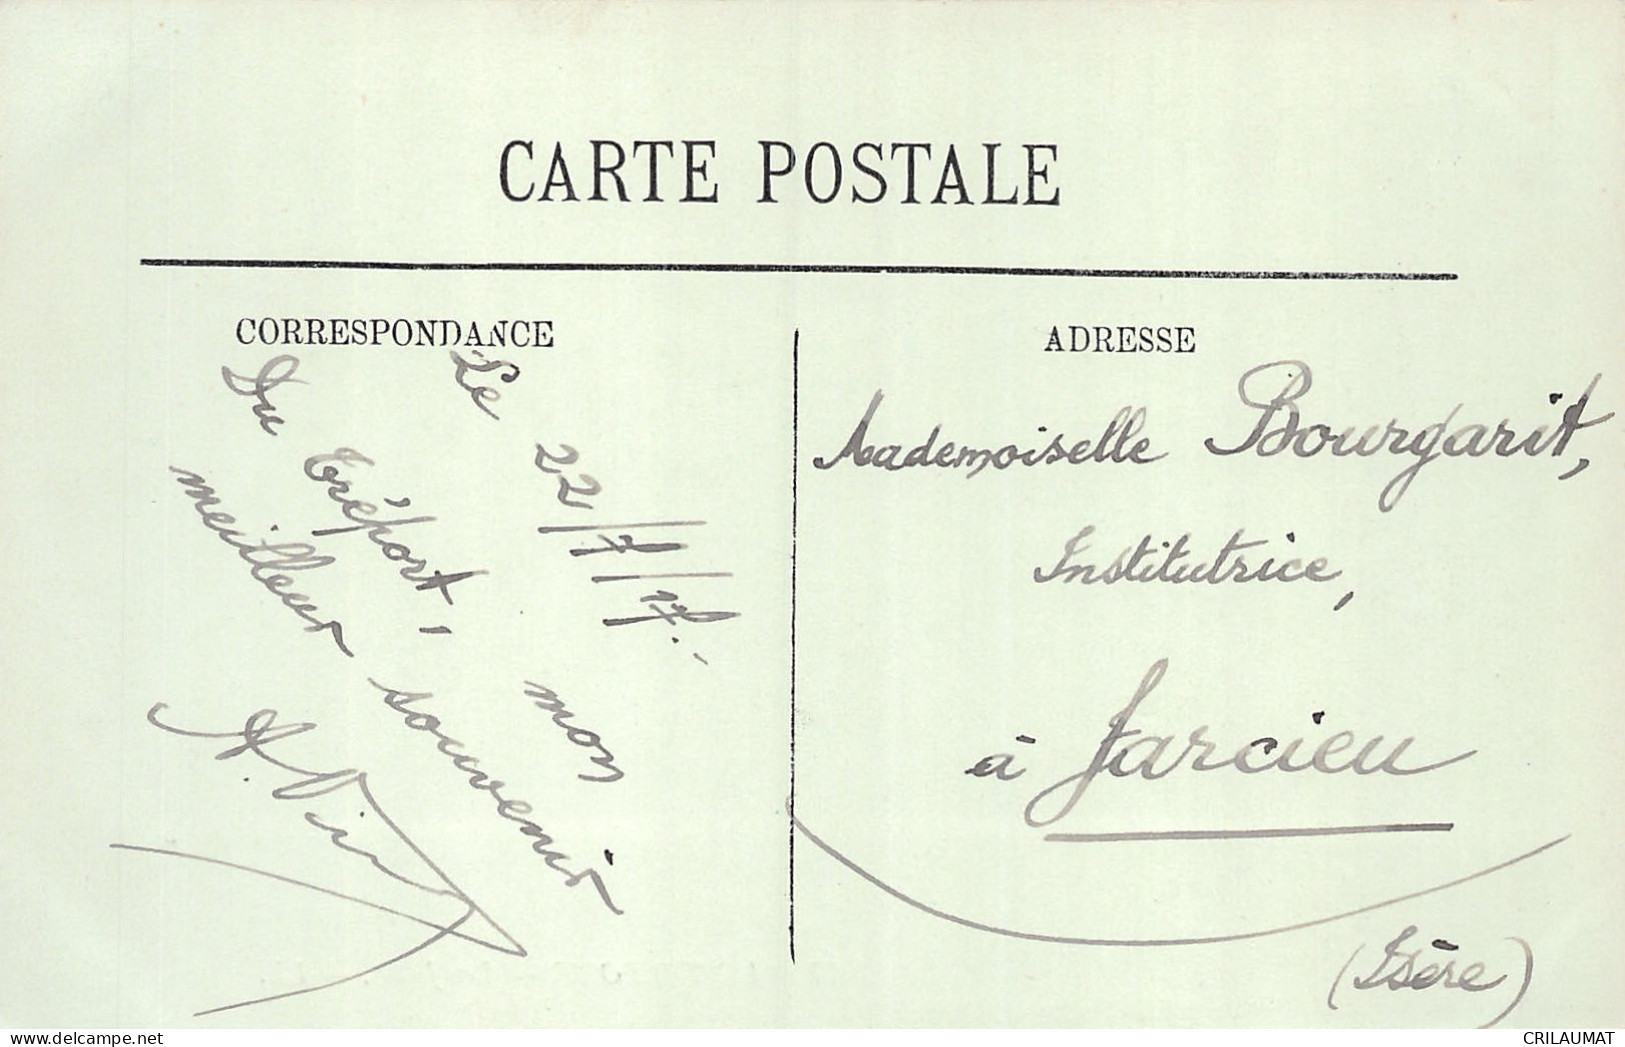 CARTE POSTALE
CORRESPONDANCE
Le 22/7/17.
Du Tréport, mon
meilleur souvenir
ADRESSE
Mademoiselle Bourgarit,
Institutrice,
à Jarcieu
(Isère)
CRILAUMAT